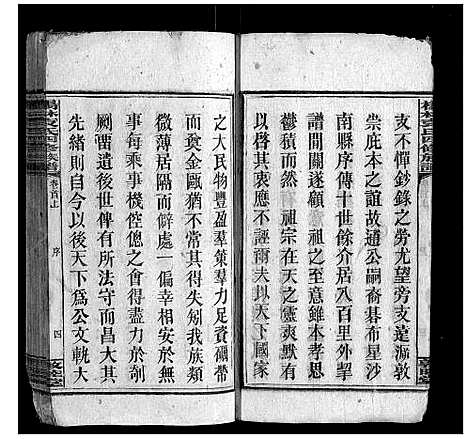 支不憚鈔錄之勞尤望旁支遠源敦
崇庇本之誼故通公嗣裔碁布星沙
南縣序傳十世餘介居八百里外舁
譜開闔遂顧　祖之至意雖本孝思
鬱積而　祖宗在天之靈默
啟庶不誣爾夫以天下國家
之大民物豐盈羣策羣力足資礪帶
而奠金甌猶不常其得失矧我族類
微薄居隔而僻處一偏幸相安於無
事每乘事機傯之會得盡力於剞
劂畱遺後世俾有所法守而昌大其
先緒則自今以後天下爲公文軌大
楊林袁氏四修族譜
卷首上
序
四